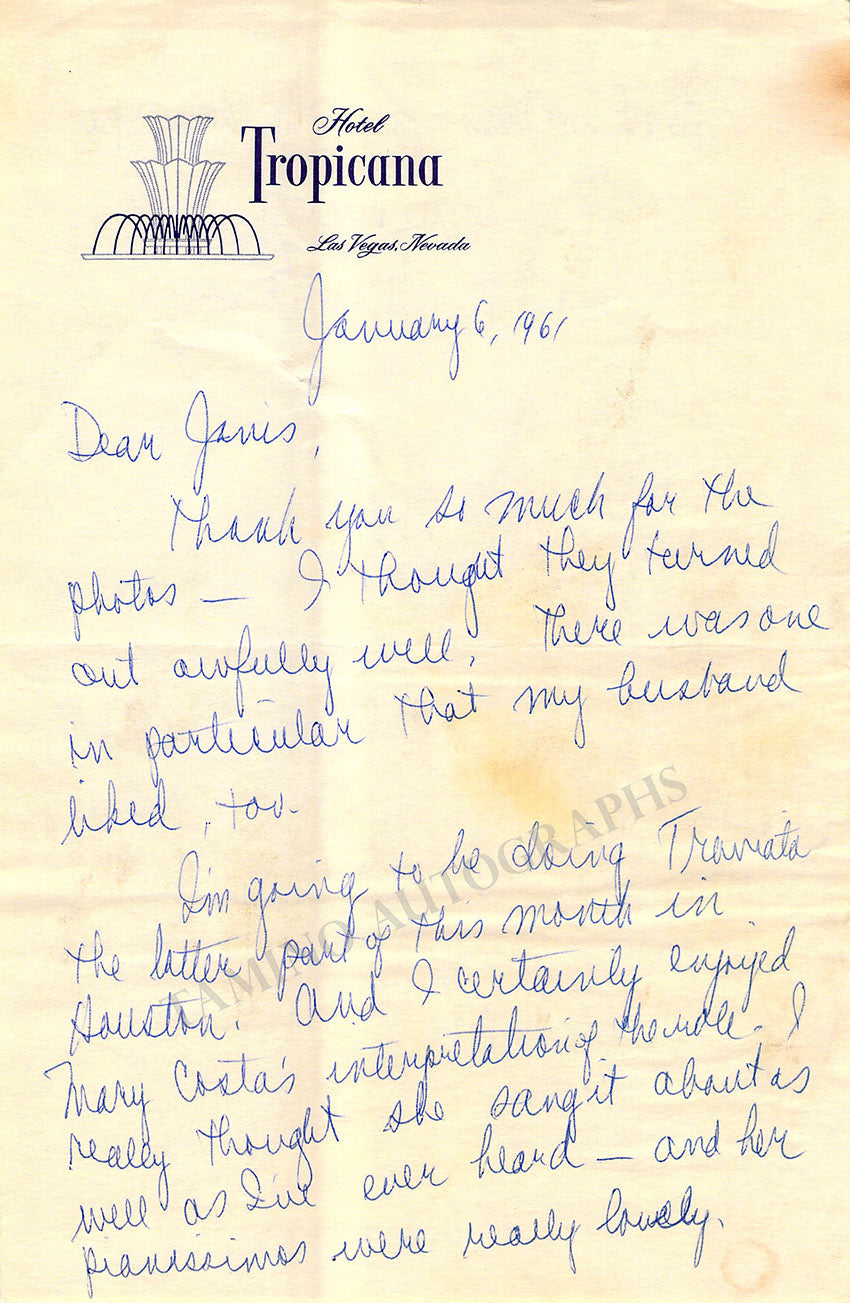 Hotel
Tropicana
Las Vegas, Nevada
January 6, 1961
Dear Janis,
Thank you so much for the
photos — I thought they turned
out awfully well. There was one
in particular that my husband
liked, too.
I'm going to be doing Traviata
the latter part of this month in
Houston. And I certainly enjoyed
Mary Costa's interpretation of the role. I
really thought she sang it about as
well as I've ever heard — and her
pianissimos were really lovely.
TAMINO AUTOGRAPHS